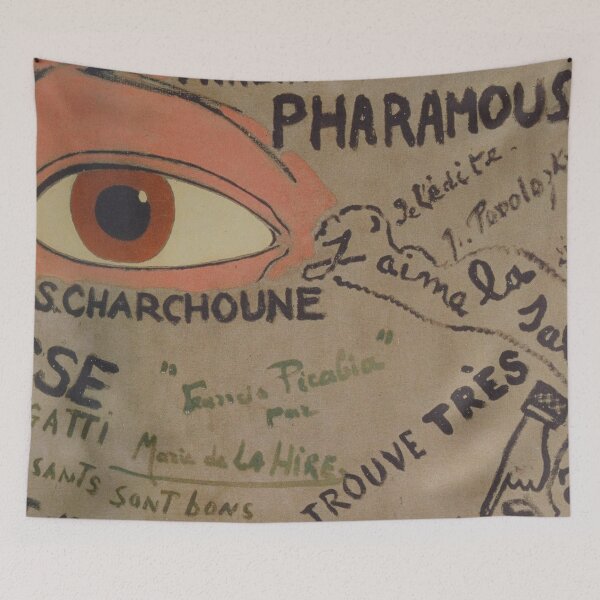 PHARAMOUS
Je l'édite.
J. Povolozk
J'aime la sal
S. CHARCHOUNE
SSE
"Francis Picabia"
par
Marie de LA HIRE.
GATTI
SANTS SONT BONS
TROUVE TRÈS